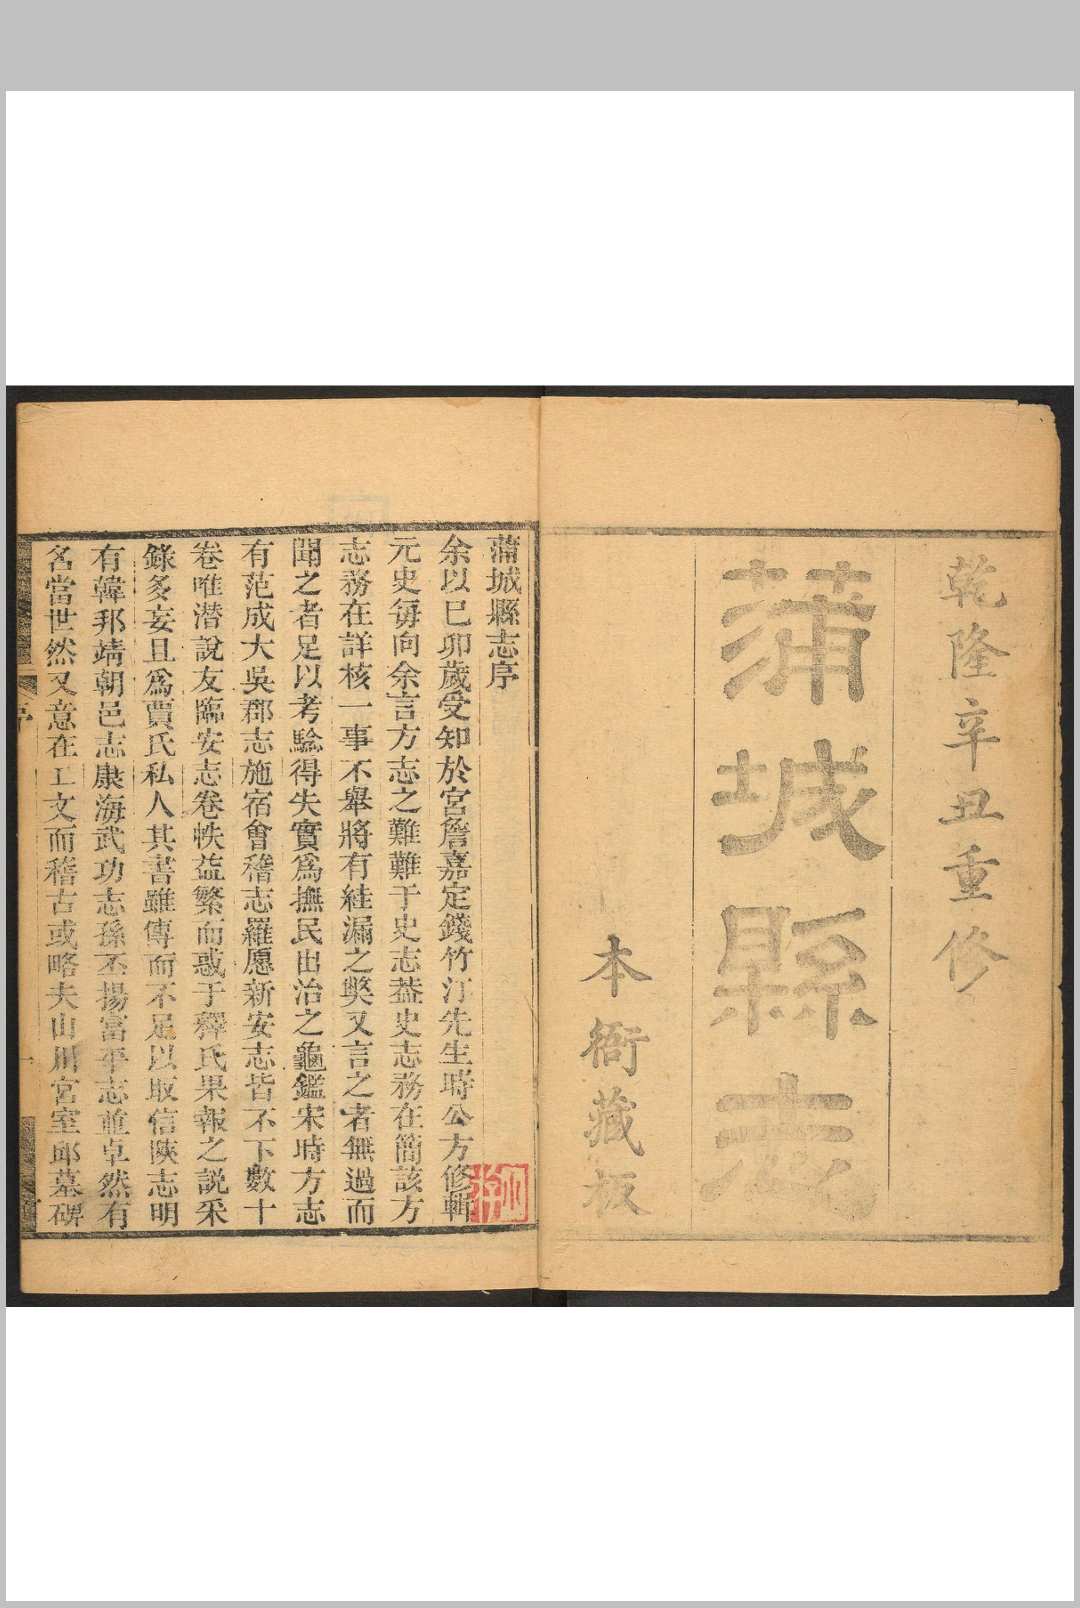 乾隆辛丑重修
蒲城縣志
本衙藏板
蒲城縣志序
余以巳卯歲受知於宮詹嘉定錢竹汀先生時公方修輯
元史每向余言方志之難難于史志葢史志務在簡該方
志務在詳核一事不舉將有絓漏之獘又言之者無過而
聞之者足以考驗得失實爲撫民出治之龜鑑宋時方志
有范成大吳郡志施宿會稽志羅愿新安志皆不下數十
卷唯潛說友臨安志卷帙益繁而惑于釋氏果報之説采
錄多妄且爲賈氏私人其書雖傳而不足以取信陝志明
有韓邦靖朝邑志康海武功志孫丕揚富平志並卓然有
名當世然又意在工文而稽古或略夫山川宮室邱墓碑
序
一